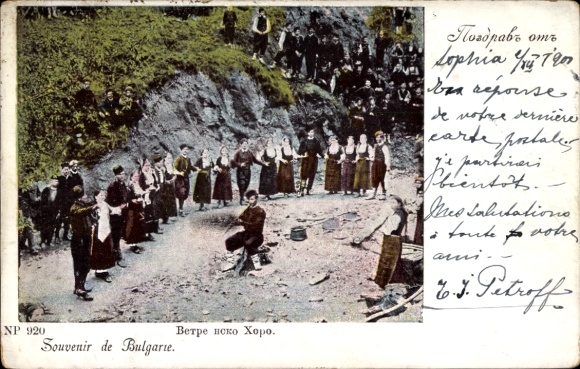 Поздравъ отъ
Sophia
En réponse
de votre dernière
carte postale,
je partirai
bientôt. —
Mes salutations
à toute votre
ami —
T. J. Petroff
NP 920
Ветре нско Хоро.
Souvenir de Bulgarie.